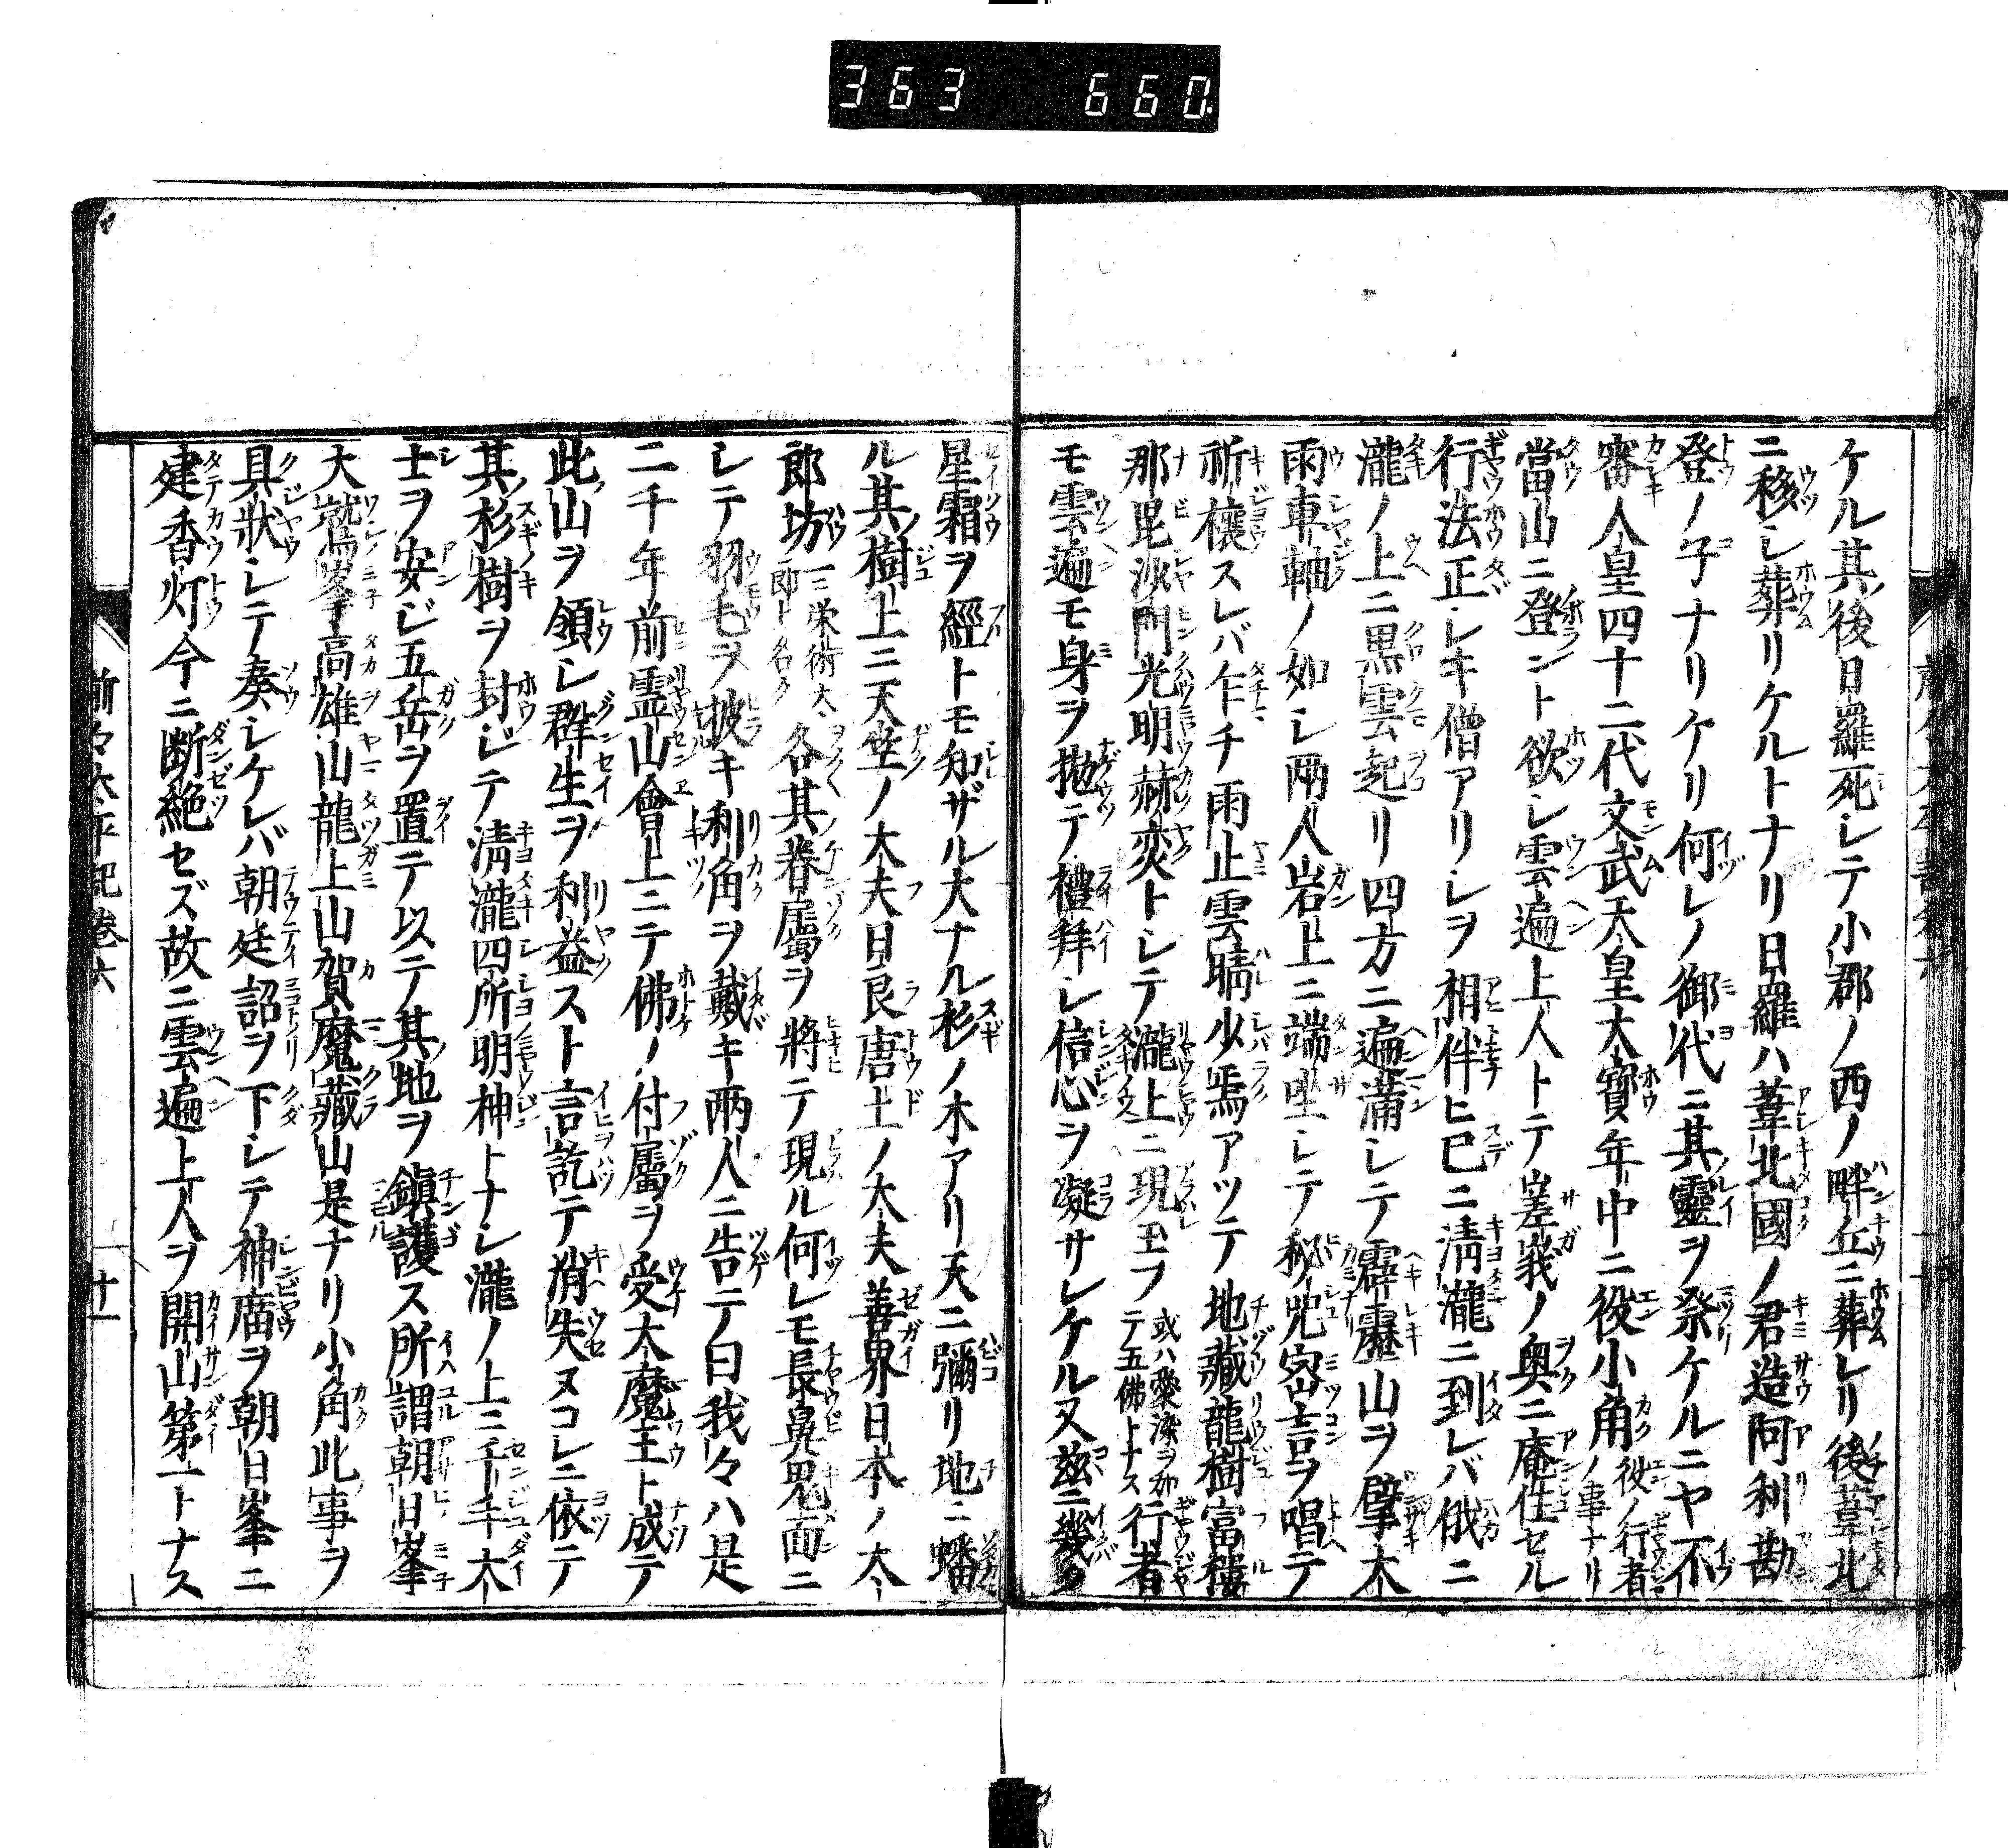 363 660.
ケル其後日羅死シテ小郡ノ西ノ畔丘ニ葬レリ後葦北
ニ移シ葬リケルトナリ日羅ハ葦北國ノ君造阿利勘
登ノ子ナリケリ何レノ御代ニ其靈ヲ祭ケルニヤ不
審人皇四十二代文武天皇大寳年中ニ役小角役ノ行者ノ事ナリ
當山ニ登ラント欲シ雲遍上人トテ嵯峩ノ奥ニ庵住セル
行法正シキ僧アリシヲ相伴ヒ已ニ淸瀧ニ到レバ俄ニ
瀧ノ上ニ黒雲起リ四方ニ遍滿シテ霹靂山ヲ擘大
雨車軸ノ如シ兩人岩上ニ端坐シテ秘咒密言ヲ唱テ
祈禳スレバ乍チ雨止雲晴少焉アツテ地藏龍樹富樓
那毘沙門光明赫奕トシテ瀧上ニ現玉フ或ハ愛染ヲ加テ五佛トナス行者
モ雲遍モ身ヲ拋テ禮拜シ信心ヲ凝サレケル又茲ニ幾タ
星霜ヲ經トモ知ザル大ナル杉ノ木アリ天ニ彌リ地ニ蟠
ル其樹上ニ天竺ノ大夫日良唐土ノ大夫善界日本ノ太
郎坊一ニ栄術太郎ト名ク各其眷屬ヲ將テ現ル何レモ長鼻鬼面ニ
シテ羽毛ヲ披キ利角ヲ戴キ兩人ニ告テ曰我々ハ是
二千年前霊山會上ニテ佛ノ付屬ヲ受大魔王ト成テ
此山ヲ領シ群生ヲ利益スト言訖テ消失ヌコレニ依テ
其杉樹ヲ封ジテ淸瀧四所明神トナシ瀧ノ上ニ千手大
士ヲ安ジ五岳ヲ置テ以テ其地ヲ鎭護ス所謂朝日峯
大鷲峯高雄山龍上山賀魔藏山是ナリ小角此事ヲ
具狀シテ奏シケレバ朝廷詔ヲ下シテ神庿ヲ朝日峯ニ
建香灯今ニ断絶セズ故ニ雲遍上人ヲ開山第一トナス
前々太平記卷六 十一